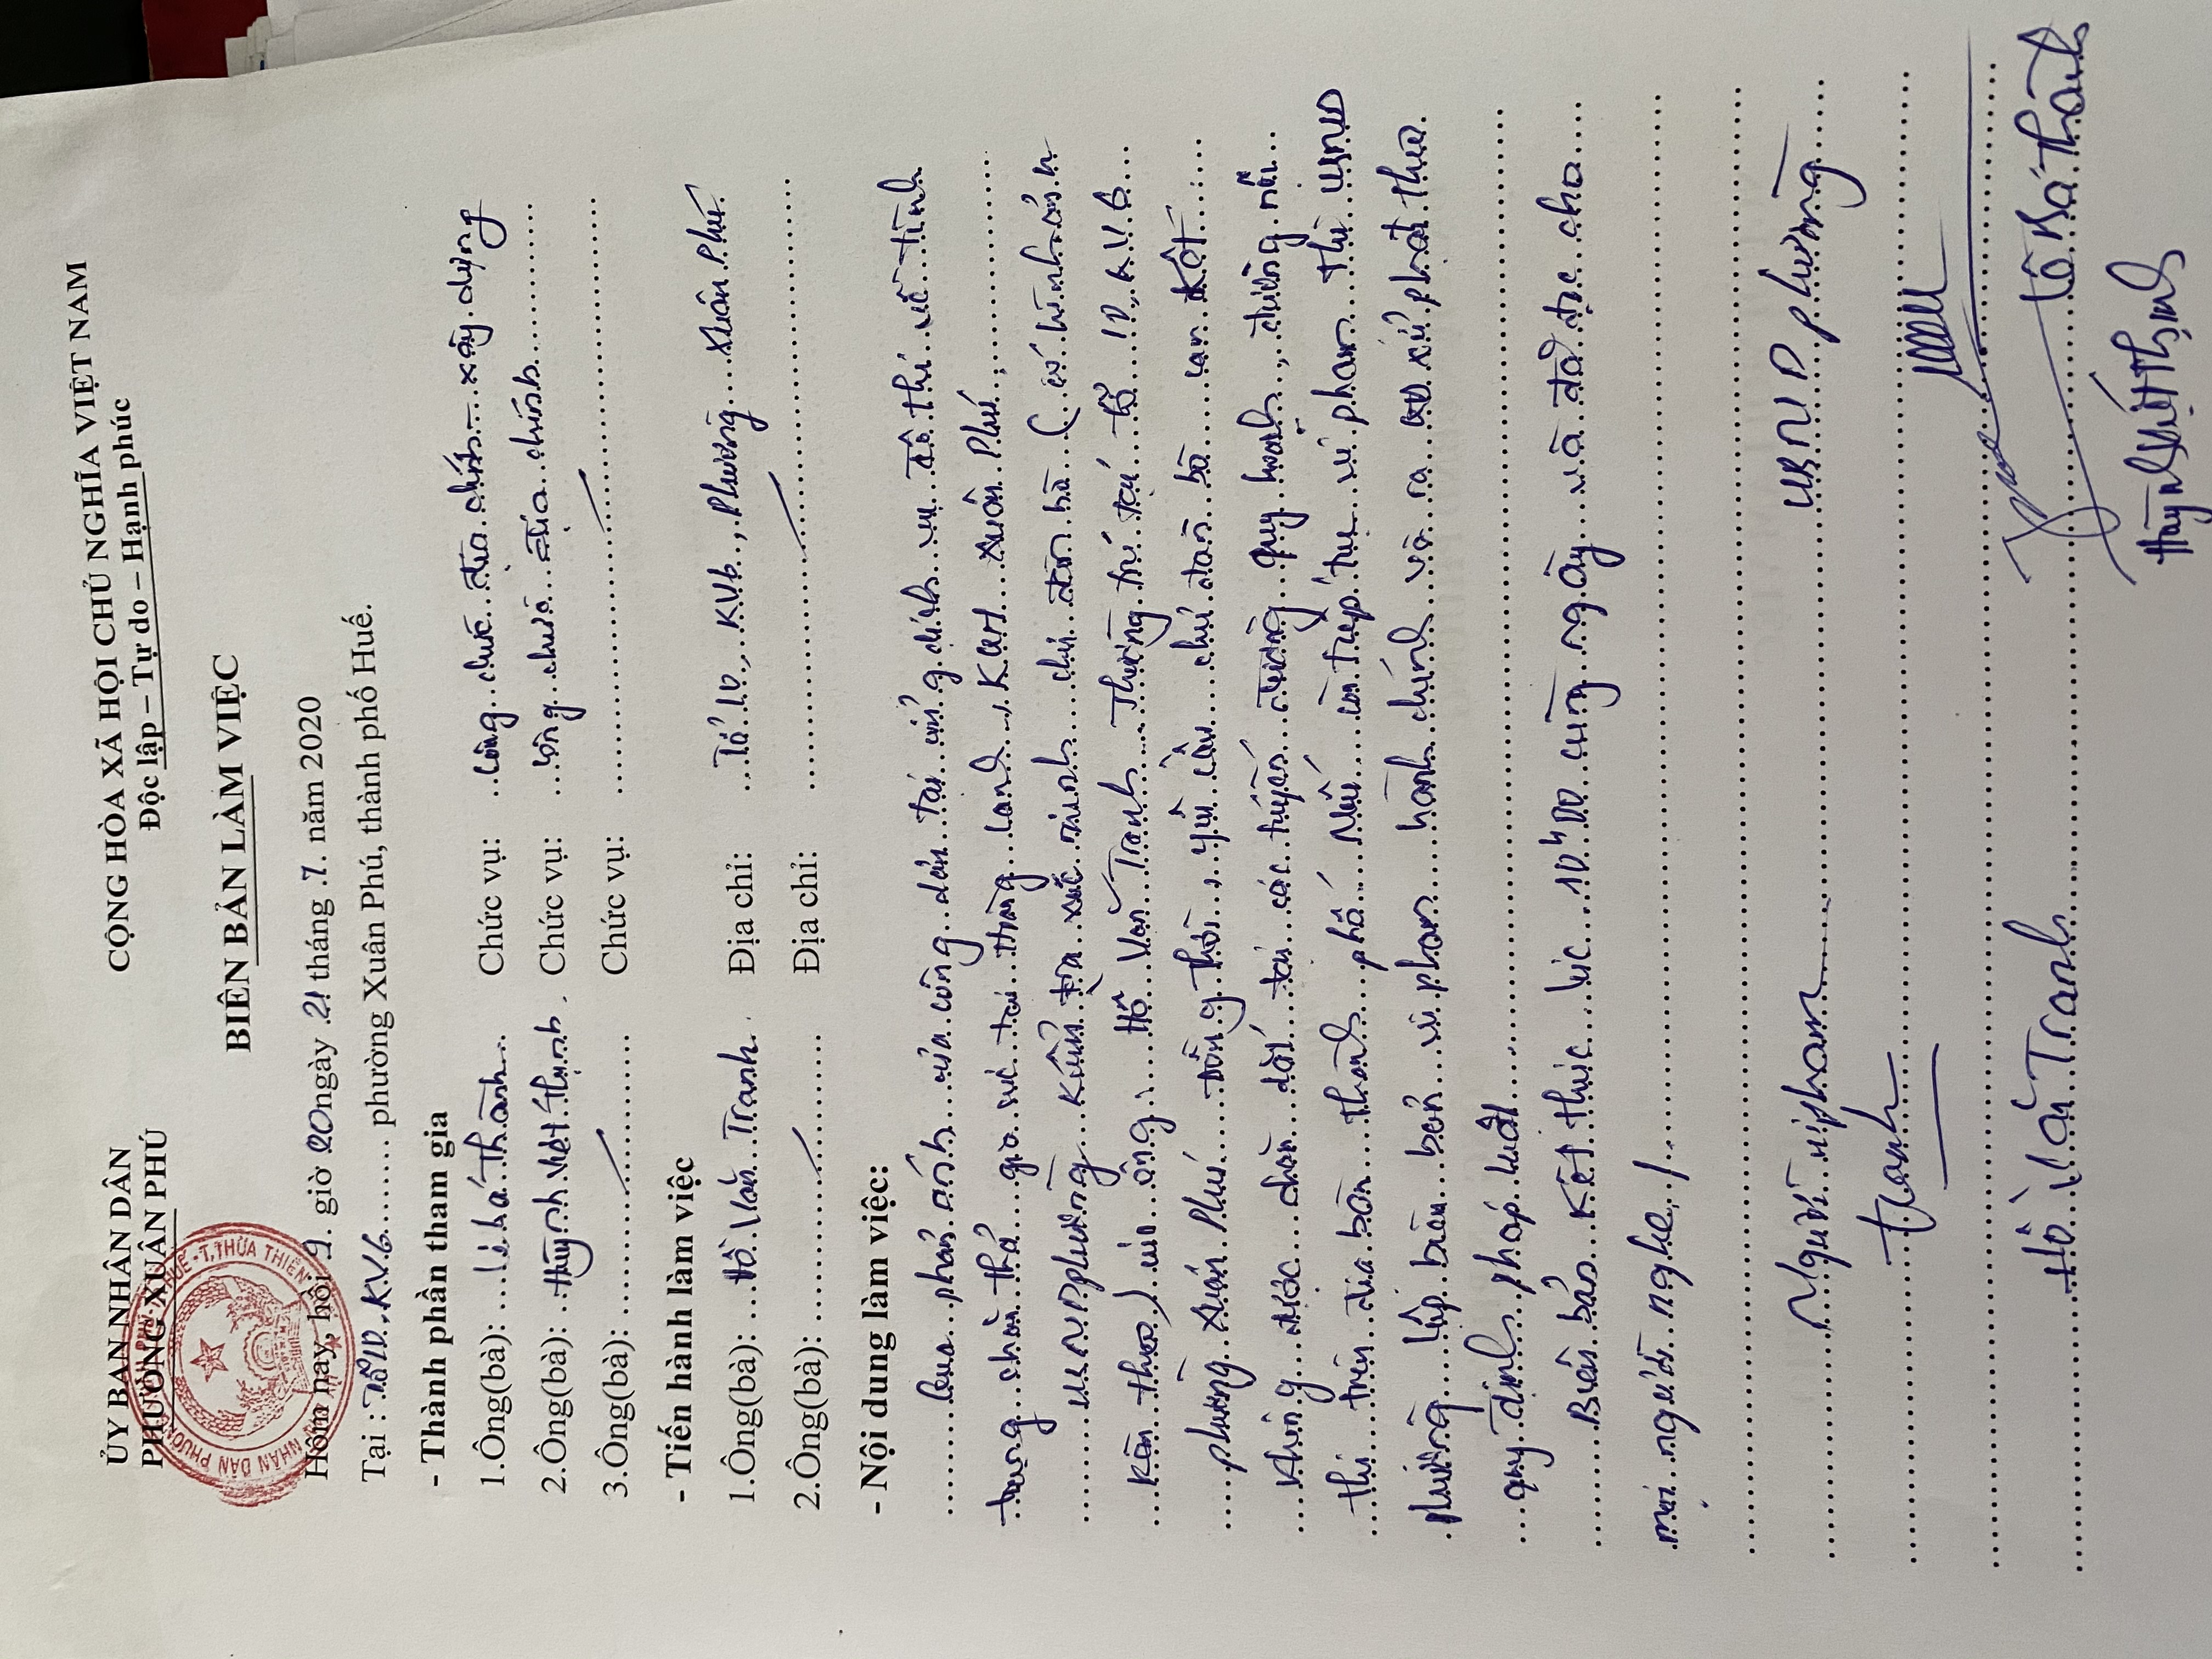 ỦY BAN NHÂN DÂN
PHƯỜNG XUÂN PHÚ
CỘNG HÒA XÃ HỘI CHỦ NGHĨA VIỆT NAM
Độc lập – Tự do – Hạnh phúc
BIÊN BẢN LÀM VIỆC
Hôm nay, hồi 9 giờ 00 ngày 21 tháng 7 năm 2020
Tại : Tổ 10, KV6 phường Xuân Phú, thành phố Huế.
- Thành phần tham gia
1.Ông(bà): Lê Bá Thành Chức vụ: Công chức địa chính - xây dựng
2.Ông(bà): Huỳnh Viết Thịnh Chức vụ: Công chức địa chính
3.Ông(bà): Chức vụ:
- Tiến hành làm việc
1.Ông(bà): Hồ Văn Tranh Địa chỉ: Tổ 10, KV6, Phường Xuân Phú.
2.Ông(bà): Địa chỉ:
- Nội dung làm việc:
Qua phản ánh của công dân tại ứng dịch vụ đô thị về tình
trạng chăn thả gia súc tại Xuân Phú,
UBND phường kiểm tra xác minh chủ đàn bò (có hình ảnh
kèm theo) của ông: Hồ Văn Tranh Thường trú tại tổ 10, KV6
phường Xuân Phú đồng thời, yêu cầu chủ đàn bò cam kết
không được chăn dắt tại các tuyến đường quy hoạch, đường nội
thị trên địa bàn thành phố. Nếu còn tiếp tục vi phạm thì UBND
phường lập biên bản vi phạm hành chính và ra QĐ xử phạt theo
quy định pháp luật.
Biên bản kết thúc lúc 10h00 cùng ngày và đã đọc cho
mọi người nghe./.
Người vi phạm UBND phường
Tranh
Hồ Văn Tranh Lê Bá Thành
Huỳnh Viết Thịnh